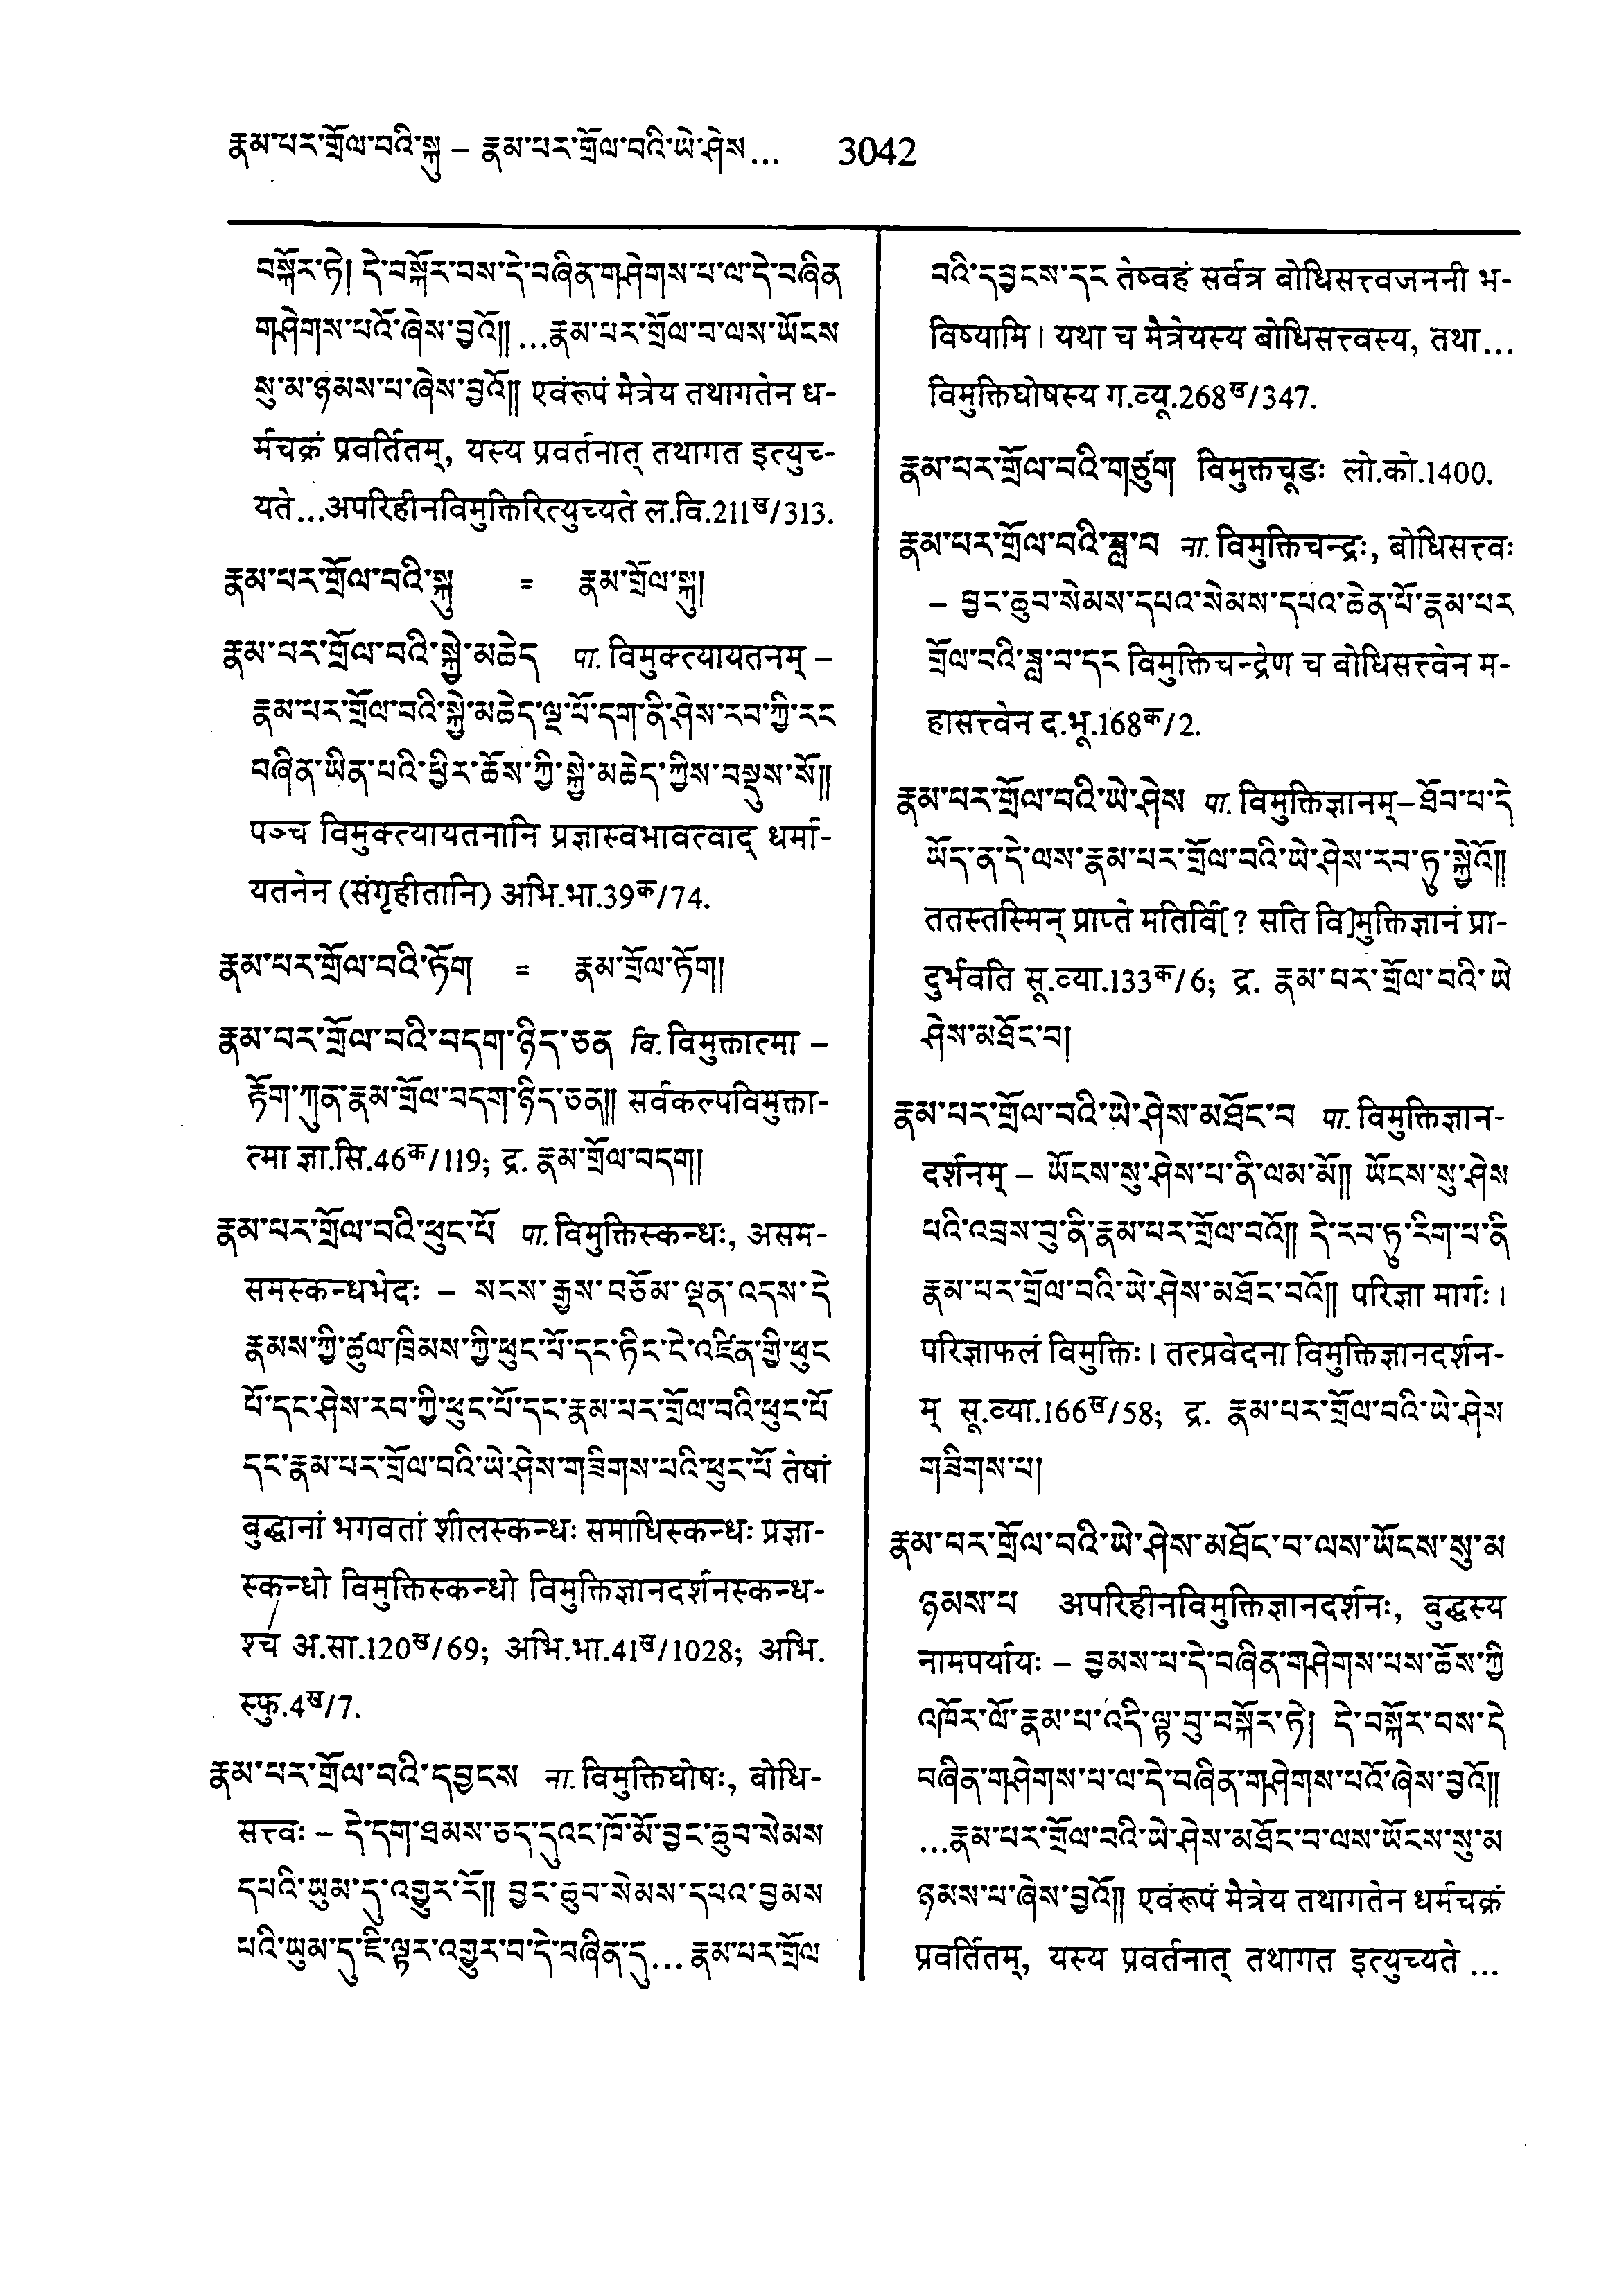 རྣམ་པར་གྲོལ་བའི་སྐུ – རྣམ་པར་གྲོལ་བའི་ཡེ་ཤེས... 3042
བསྐོར་ཏེ། དེ་བསྐོར་བས་དེ་བཞིན་གཤེགས་པ་ལ་དེ་བཞིན
གཤེགས་པའོ་ཞེས་བྱའོ།། ...རྣམ་པར་གྲོལ་བ་ལས་ཡོངས
སུ་མ་ཉམས་པ་ཞེས་བྱའོ།། एवंरूपं मैत्रेय तथागतेन ध-
र्मचक्रं प्रवर्तितम्, यस्य प्रवर्तनात् तथागत इत्युच्-
यते...अपरिहीनविमुक्तिरित्युच्यते ल.वि.211ख/313.
རྣམ་པར་གྲོལ་བའི་སྐུ = རྣམ་གྲོལ་སྐུ།
རྣམ་པར་གྲོལ་བའི་སྐྱེ་མཆེད पा. विमुक्त्यायतनम् –
རྣམ་པར་གྲོལ་བའི་སྐྱེ་མཆེད་ལྔ་པོ་དག་ནི་ཤེས་རབ་ཀྱི་རང
བཞིན་ཡིན་པའི་ཕྱིར་ཆོས་ཀྱི་སྐྱེ་མཆེད་ཀྱིས་བསྡུས་སོ།།
पञ्च विमुक्त्यायतनानि प्रज्ञास्वभावत्वाद् धर्मा-
यतनेन (संगृहीतानि) अभि.भा.39क/74.
རྣམ་པར་གྲོལ་བའི་ཏོག = རྣམ་གྲོལ་ཏོག།
རྣམ་པར་གྲོལ་བའི་བདག་ཉིད་ཅན वि. विमुक्तात्मा –
རྟོག་ཀུན་རྣམ་གྲོལ་བདག་ཉིད་ཅན།། सर्वकल्पविमुक्ता-
त्मा ज्ञा.सि.46क/119; द्र. རྣམ་གྲོལ་བདག།
རྣམ་པར་གྲོལ་བའི་ཕུང་པོ पा. विमुक्तिस्कन्धः, असम-
समस्कन्धभेदः – སངས་རྒྱས་བཅོམ་ལྡན་འདས་དེ
རྣམས་ཀྱི་ཚུལ་ཁྲིམས་ཀྱི་ཕུང་པོ་དང་ཏིང་ངེ་འཛིན་གྱི་ཕུང
པོ་དང་ཤེས་རབ་ཀྱི་ཕུང་པོ་དང་རྣམ་པར་གྲོལ་བའི་ཕུང་པོ
དང་རྣམ་པར་གྲོལ་བའི་ཡེ་ཤེས་གཟིགས་པའི་ཕུང་པོ तेषां
बुद्धानां भगवतां शीलस्कन्धः समाधिस्कन्धः प्रज्ञा-
स्कन्धो विमुक्तिस्कन्धो विमुक्तिज्ञानदर्शनस्कन्ध-
श्च अ.सा.120ख/69; अभि.भा.41ख/1028; अभि.
स्फु.4ख/7.
རྣམ་པར་གྲོལ་བའི་དབྱངས ना. विमुक्तिघोषः, बोधि-
सत्त्वः – དེ་དག་ཐམས་ཅད་དུའང་ཁོ་མོ་བྱང་ཆུབ་སེམས
དཔའི་ཡུམ་དུ་འགྱུར་རོ།། བྱང་ཆུབ་སེམས་དཔའ་བྱམས
པའི་ཡུམ་དུ་ཇི་ལྟར་འགྱུར་བ་དེ་བཞིན་དུ... རྣམ་པར་གྲོལ
བའི་དབྱངས་དང तेष्वहं सर्वत्र बोधिसत्त्वजननी भ-
विष्यामि। यथा च मैत्रेयस्य बोधिसत्त्वस्य, तथा...
विमुक्तिघोषस्य ग.व्यू.268ख/347.
རྣམ་པར་གྲོལ་བའི་གཙུག विमुक्तचूडः लो.को.1400.
རྣམ་པར་གྲོལ་བའི་ཟླ་བ ना. विमुक्तिचन्द्रः, बोधिसत्त्वः
– བྱང་ཆུབ་སེམས་དཔའ་སེམས་དཔའ་ཆེན་པོ་རྣམ་པར
གྲོལ་བའི་ཟླ་བ་དང विमुक्तिचन्द्रेण च बोधिसत्त्वेन म-
हासत्त्वेन द.भू.168क/2.
རྣམ་པར་གྲོལ་བའི་ཡེ་ཤེས पा. विमुक्तिज्ञानम्– ཐོབ་པ་དེ
ཡོད་ན་དེ་ལས་རྣམ་པར་གྲོལ་བའི་ཡེ་ཤེས་རབ་ཏུ་སྐྱེའོ།།
ततस्तस्मिन् प्राप्ते मतिर्वि[? सति वि]मुक्तिज्ञानं प्रा-
दुर्भवति सू.व्या.133क/6; द्र. རྣམ་པར་གྲོལ་བའི་ཡེ
ཤེས་མཐོང་བ།
རྣམ་པར་གྲོལ་བའི་ཡེ་ཤེས་མཐོང་བ पा. विमुक्तिज्ञान-
दर्शनम् – ཡོངས་སུ་ཤེས་པ་ནི་ལམ་མོ།། ཡོངས་སུ་ཤེས
པའི་འབྲས་བུ་ནི་རྣམ་པར་གྲོལ་བའོ།། དེ་རབ་ཏུ་རིག་པ་ནི
རྣམ་པར་གྲོལ་བའི་ཡེ་ཤེས་མཐོང་བའོ།། परिज्ञा मार्गः।
परिज्ञाफलं विमुक्तिः। तत्प्रवेदना विमुक्तिज्ञानदर्शन-
म् सू.व्या.166ख/58; द्र. རྣམ་པར་གྲོལ་བའི་ཡེ་ཤེས
གཟིགས་པ།
རྣམ་པར་གྲོལ་བའི་ཡེ་ཤེས་མཐོང་བ་ལས་ཡོངས་སུ་མ
ཉམས་པ अपरिहीनविमुक्तिज्ञानदर्शनः, बुद्धस्य
नामपर्यायः – བྱམས་པ་དེ་བཞིན་གཤེགས་པས་ཆོས་ཀྱི
འཁོར་ལོ་རྣམ་པ་འདི་ལྟ་བུ་བསྐོར་ཏེ། དེ་བསྐོར་བས་དེ
བཞིན་གཤེགས་པ་ལ་དེ་བཞིན་གཤེགས་པའོ་ཞེས་བྱའོ།།
...རྣམ་པར་གྲོལ་བའི་ཡེ་ཤེས་མཐོང་བ་ལས་ཡོངས་སུ་མ
ཉམས་པ་ཞེས་བྱའོ།། एवंरूपं मैत्रेय तथागतेन धर्मचक्रं
प्रवर्तितम्, यस्य प्रवर्तनात् तथागत इत्युच्यते ...